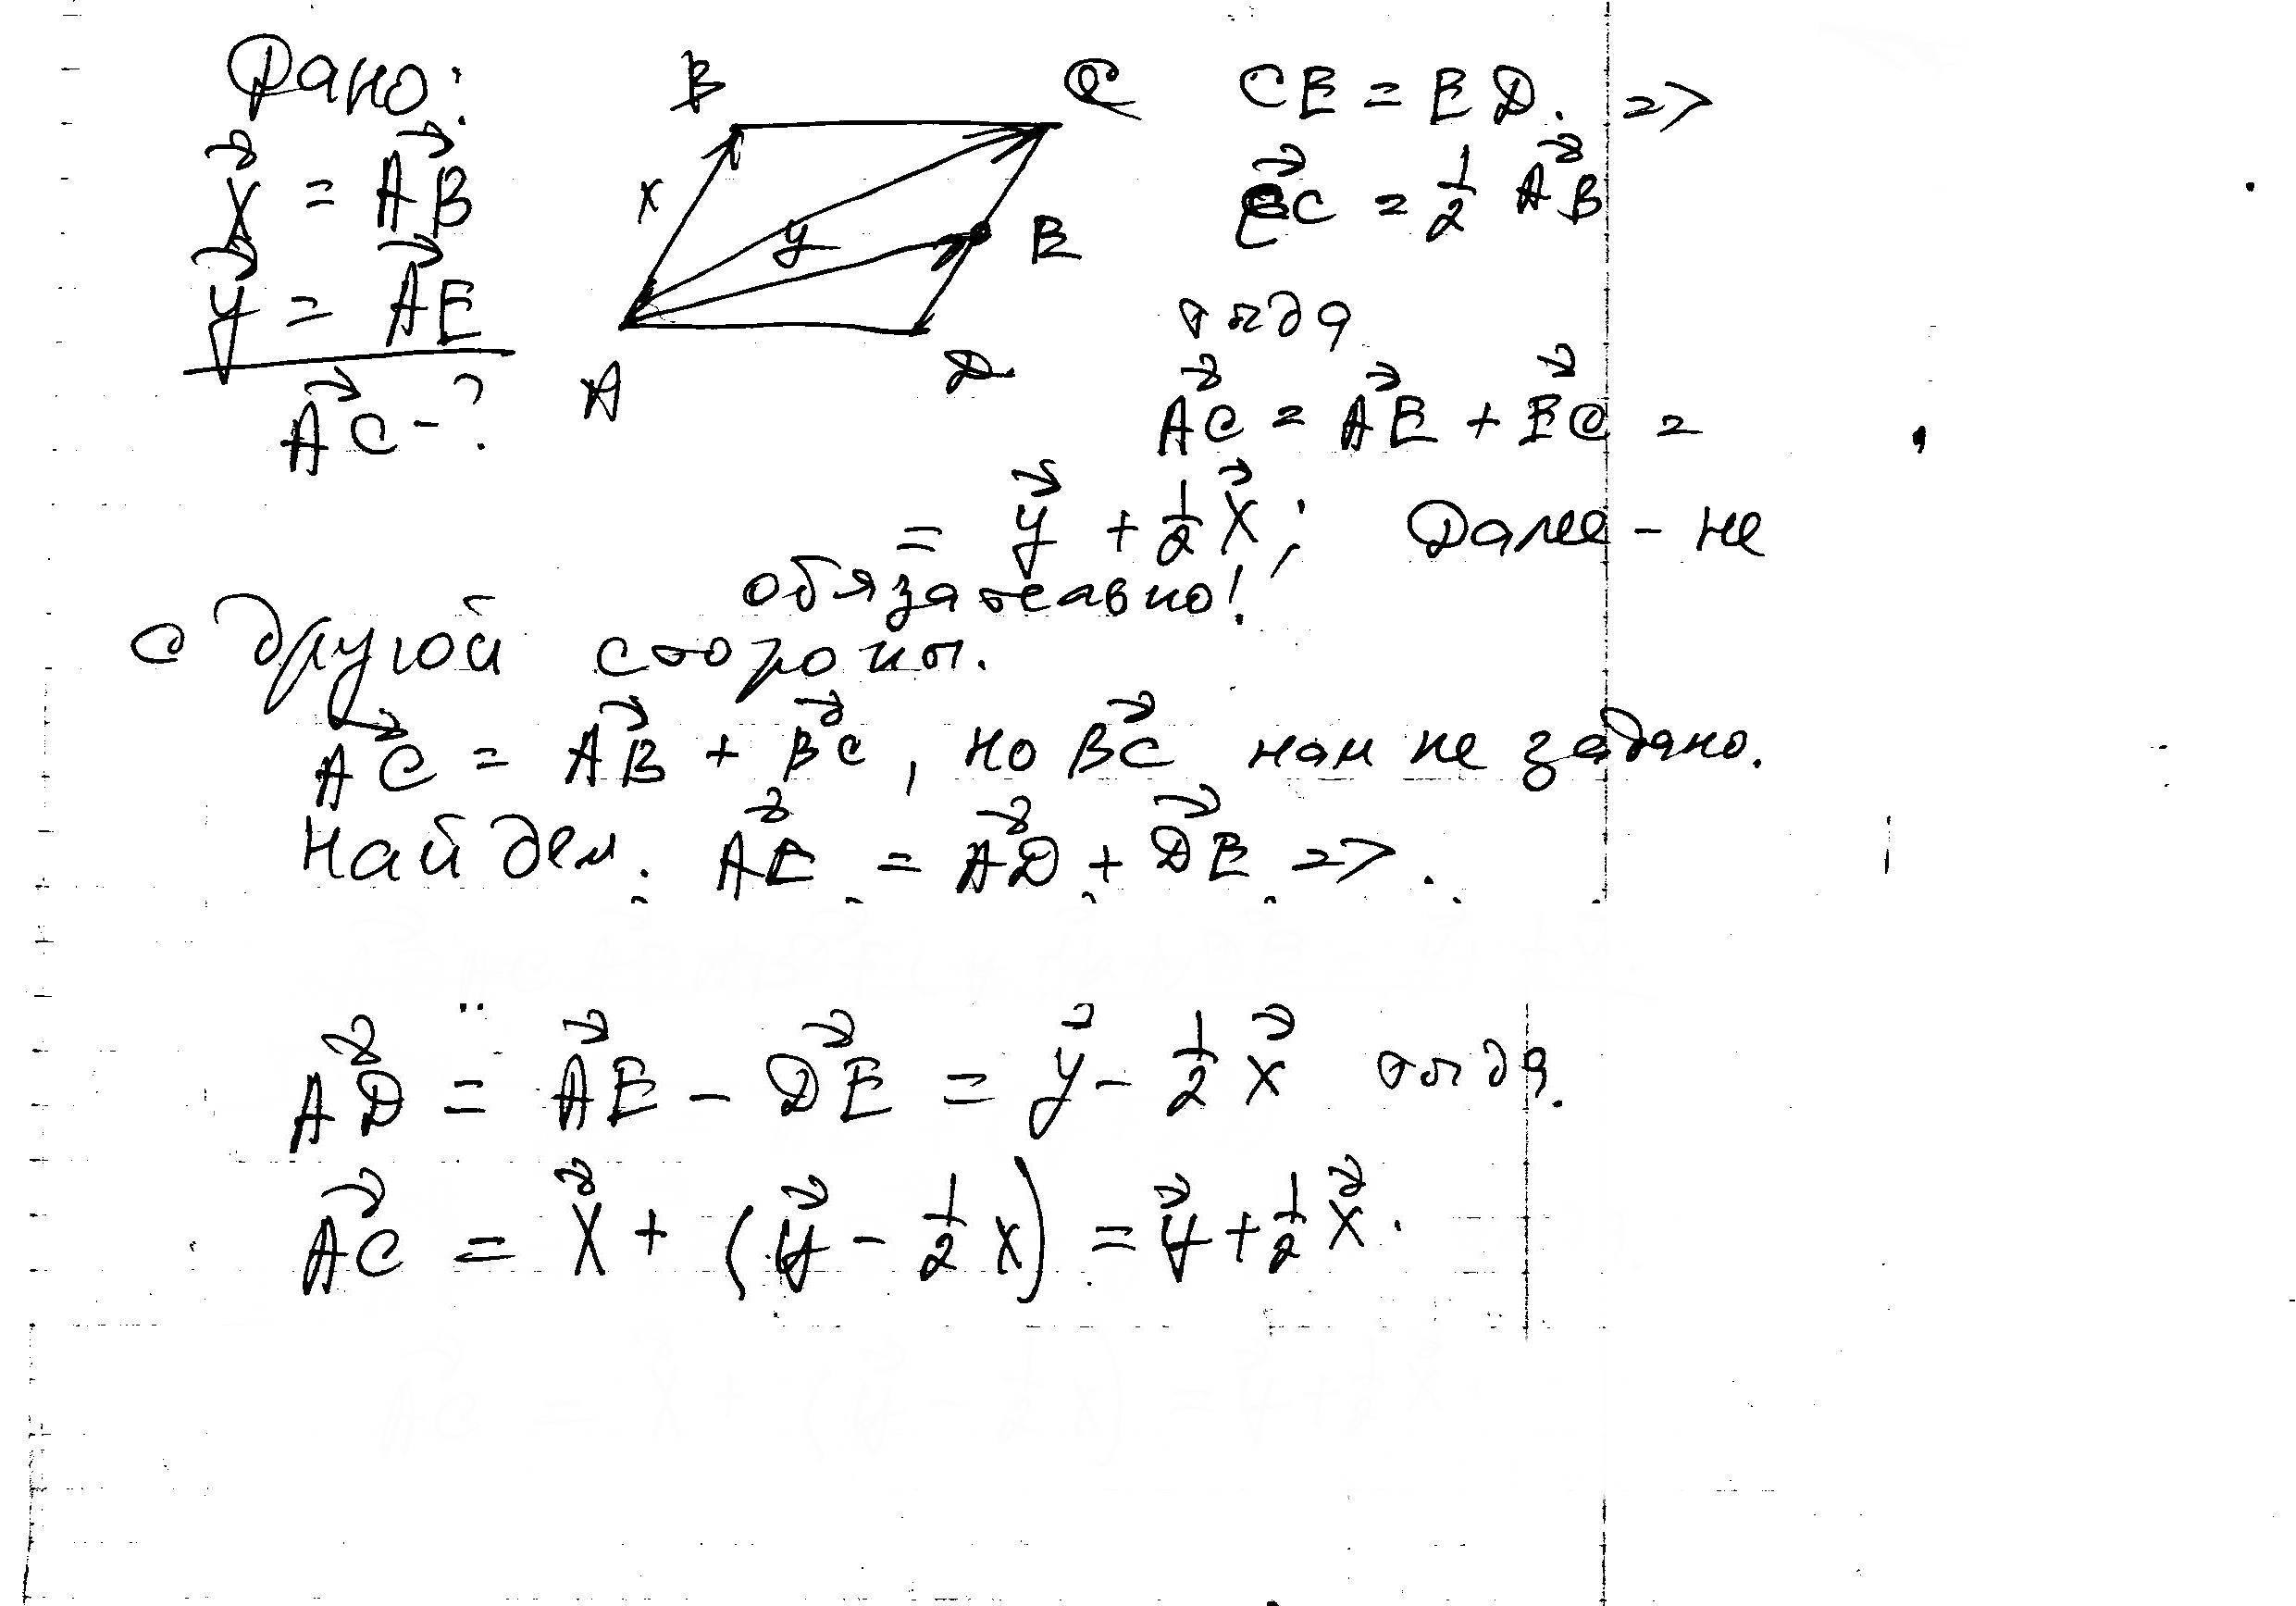 Дано:
x⃗ = AB⃗
y⃗ = AE⃗
AC⃗ - ?
B
C
x
y
E
A
D
CE = ED. =>
EC⃗ = 1/2 AB⃗
тогда
AC⃗ = AE⃗ + EC⃗ =
= y⃗ + 1/2 x⃗; Далее - не
обязательно!
С другой стороны.
AC⃗ = AB⃗ + BC⃗, но BC⃗ нам не задано.
Найдем. AE⃗ = AD⃗ + DE⃗ =>.
AD⃗ = AE⃗ - DE⃗ = y⃗ - 1/2 x⃗ тогда.
AC⃗ = x⃗ + (y⃗ - 1/2 x) = y⃗ + 1/2 x⃗.